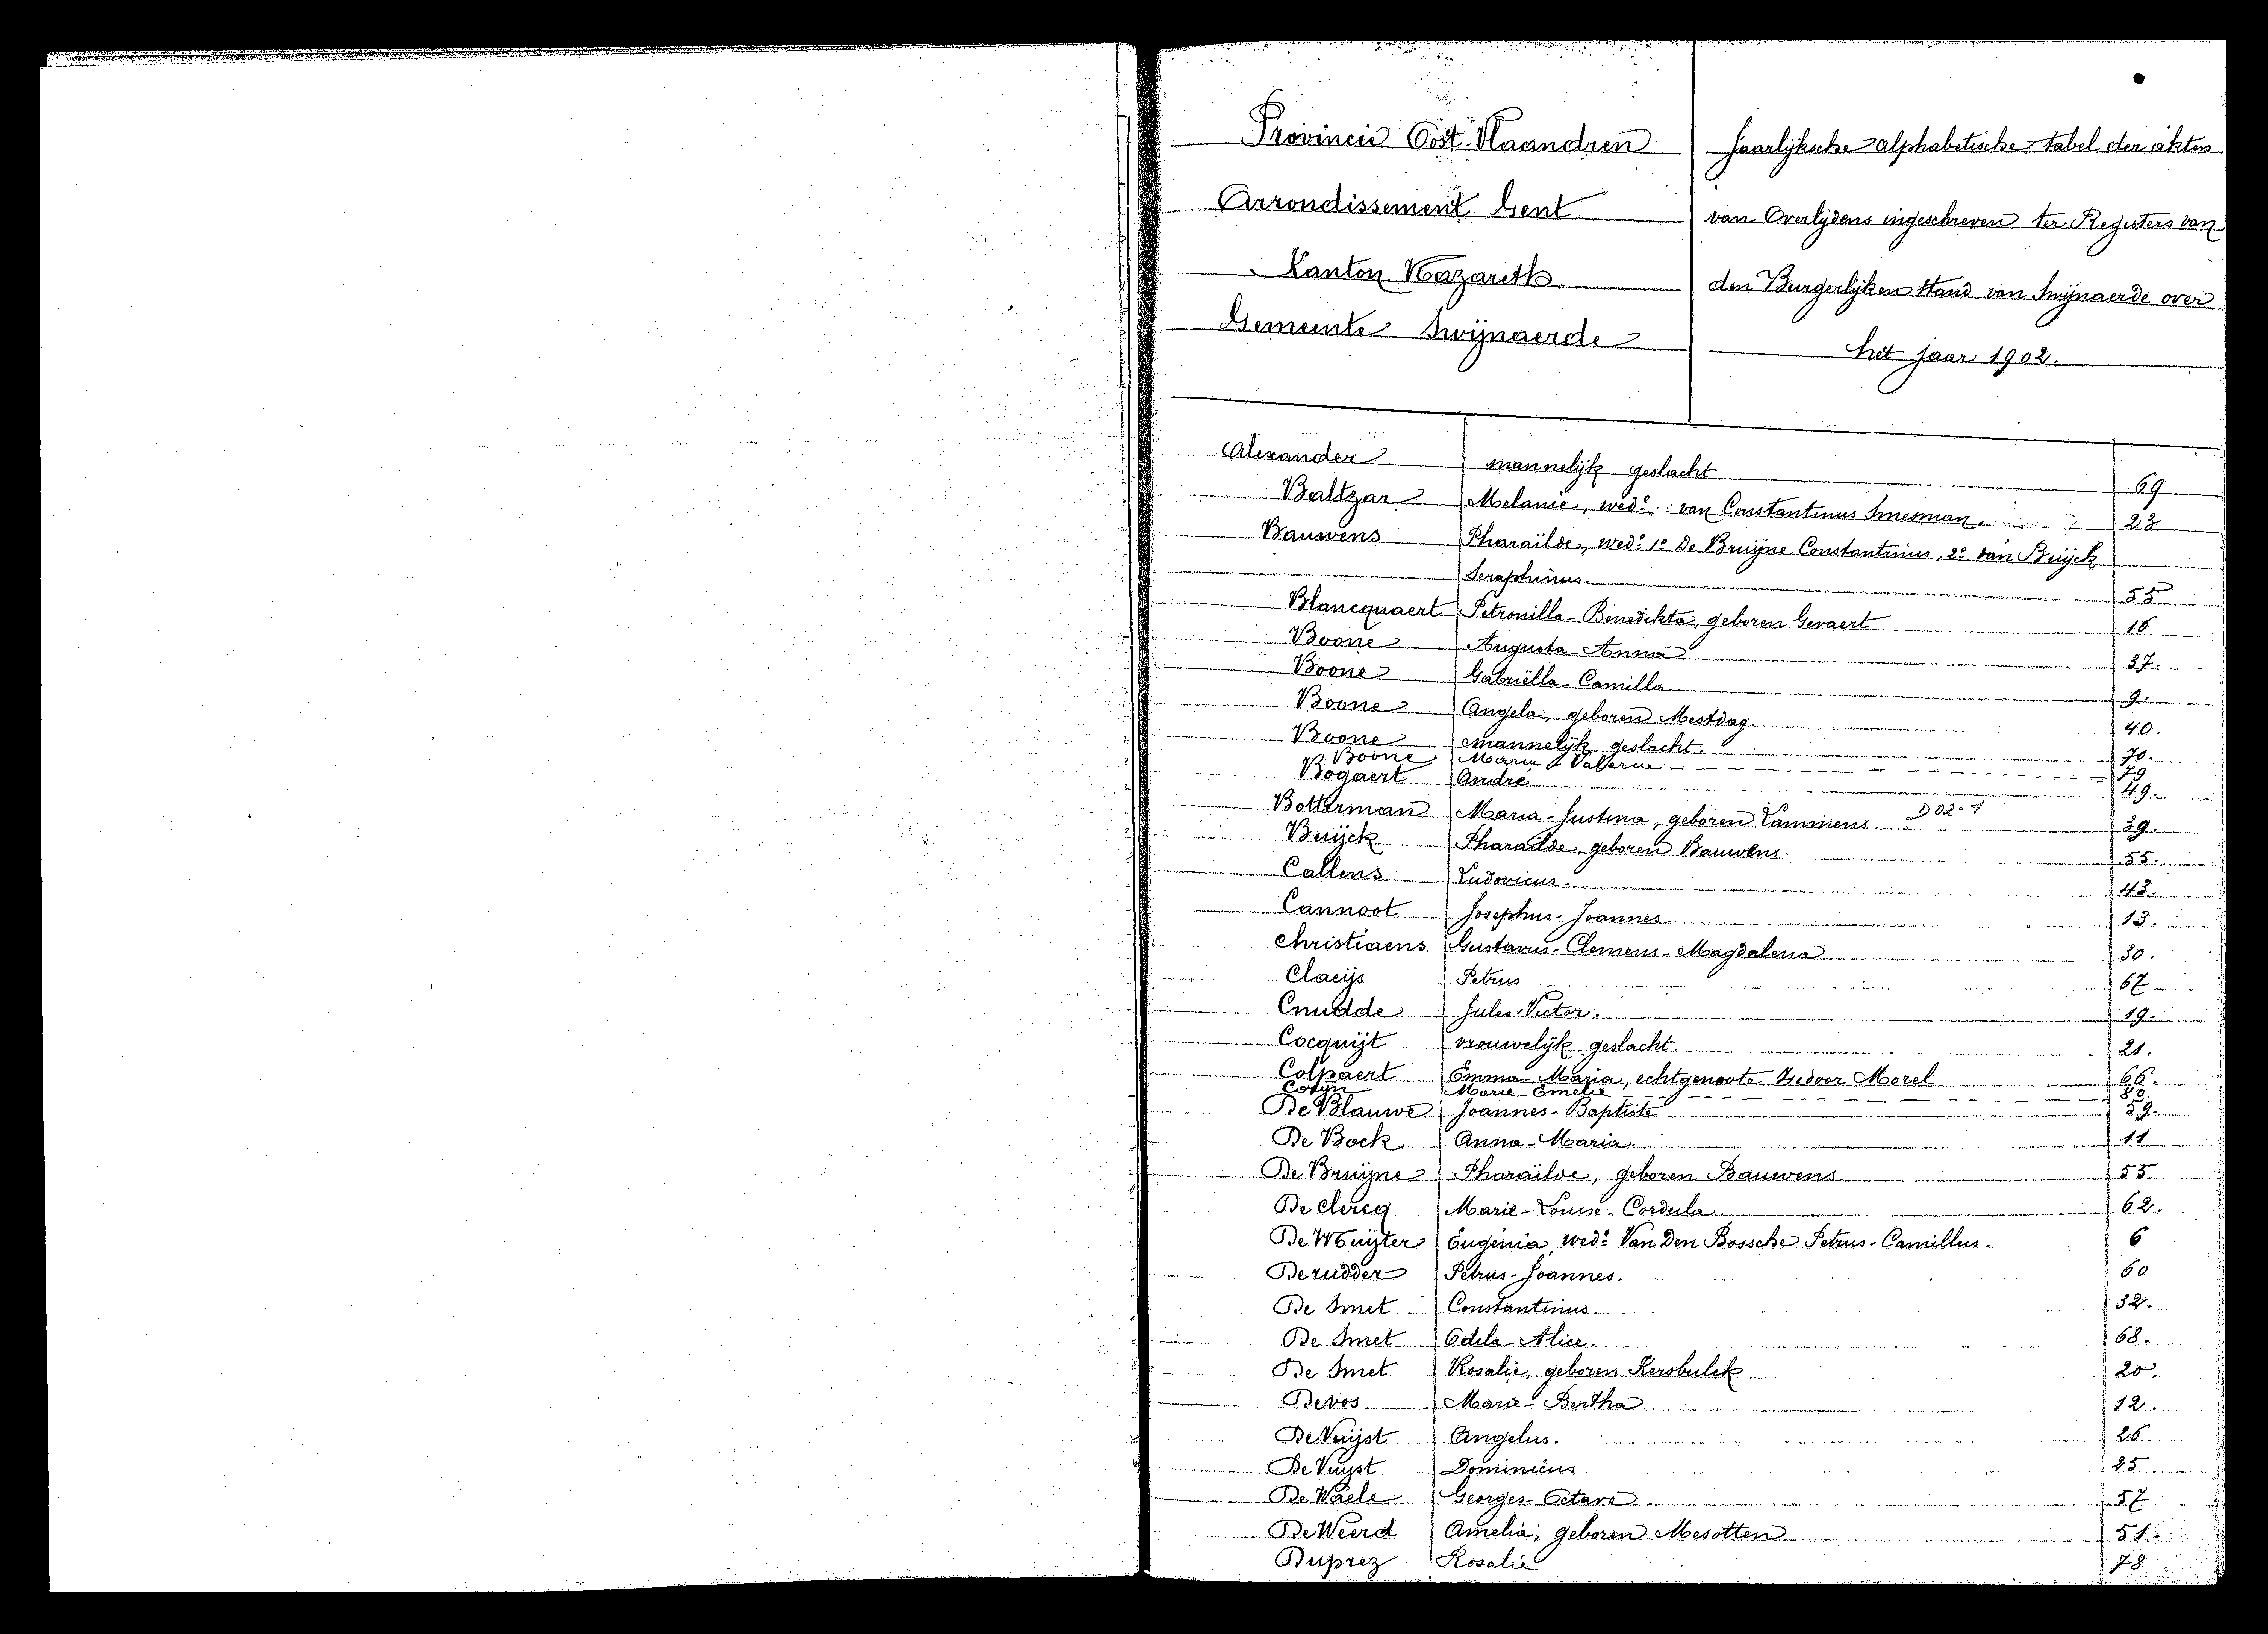 Provincie Oost-Vlaandren
Arrondissement Gent
Kanton Nazareth
Gemeente Swijnaerde
Jaarlijksche alphabetische tabel der akten
van Overlijdens ingeschreven ter Registers van
den Burgerlijken stand van Swijnaerde over
het jaar 1902.
Alexander mannelijk geslacht 69
Baltzar Melanie, wede van Constantinus Smesman. 23
Bauwens Pharaïlde, wede 1e De Bruijne Constantinus, 2e van Buijck
Seraphinus. 55
Blancquaert Petronilla-Benedikta, geboren Gevaert 16
Boone Augusta-Anna 37.
Boone Gabriëlla-Camilla 9.
Boone Angela, geboren Mestdag. 40.
Boone mannelijk geslacht. 70.
Boone Maria Valerie 79
Bogaert André 49.
Botterman Maria-Justina, geboren Lammens. D 02-1 39.
Buijck Pharaïlde, geboren Bauwens. 55.
Callens Ludovicus. 43.
Cannoot Josephus-Joannes. 13.
Christiaens Gustavus-Clemens-Magdalena 30.
Claeijs Petrus 67
Cnudde Jules-Victor. 19.
Cocquijt vrouwelijk geslacht. 21.
Colpaert Emma-Maria, echtgenoote Isidoor Morel 66.
Marie-Emelie
De Blauwe Joannes-Baptiste 59.
De Bock Anna-Maria. 11
De Bruijne Pharaïlde, geboren Bauwens. 55
De Clercq Marie-Louise-Cordula. 62.
De Muijter Eugenia, wede Van Den Bossche Petrus-Camillus. 6
Derudder Petrus-Joannes. 60
De Smet Constantinus 32.
De Smet Odila-Alice. 68.
De Smet Rosalie, geboren Kersbulck 20.
Devos Marie-Bertha 12.
De Vuijst Angelus. 26.
De Vuijst Dominicus. 25
De Waele Georges-Octave 57
De Weerd Amelia, geboren Mesotten 51.
Duprez Rosalie 78